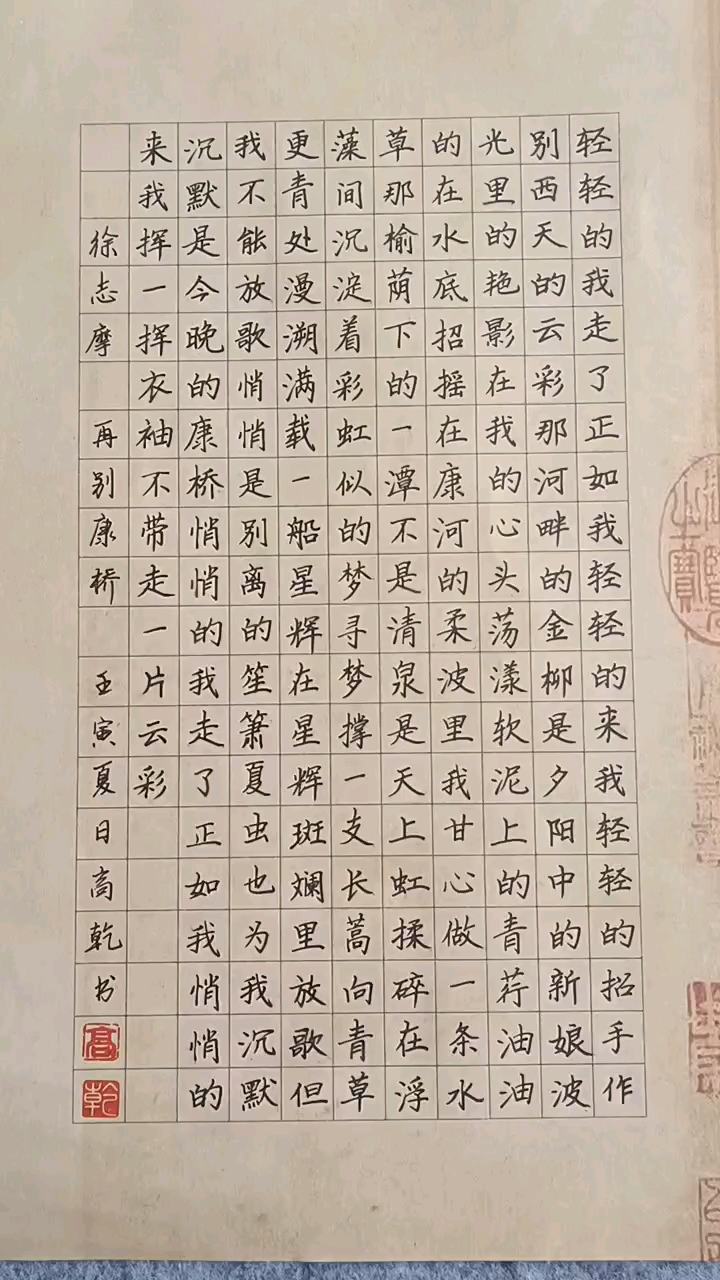 轻轻的我走了正如我轻轻的来我轻轻的招手作
别西天的云彩那河畔的金柳是夕阳中的新娘波
光里的艳影在我的心头荡漾软泥上的青荇油油
的在水底招摇在康河的柔波里我甘心做一条水
草那榆荫下的一潭不是清泉是天上虹揉碎在浮
藻间沉淀着彩虹似的梦寻梦撑一支长蒿向青草
更青处漫溯满载一船星辉在星辉斑斓里放歌但
我不能放歌悄悄是别离的笙箫夏虫也为我沉默
沉默是今晚的康桥悄悄的我走了正如我悄悄的
来我挥一挥衣袖不带走一片云彩
徐志摩 再别康桥 壬寅夏日高乾书
高
乾